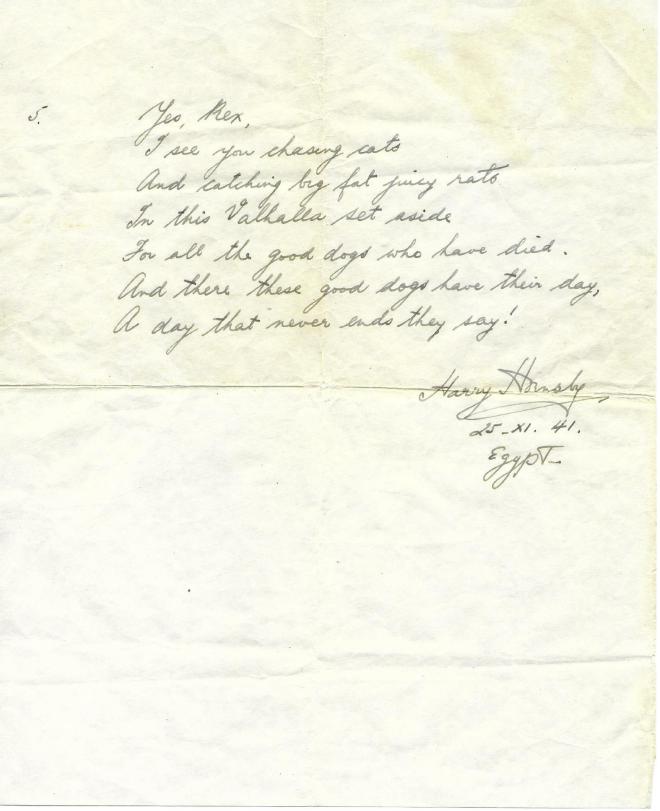 5.
Yes, Rex,
I see you chasing cats
And catching big fat juicy rats
In this Valhalla set aside
For all the good dogs who have died.
And there these good dogs have their day,
A day that never ends they say!
Harry Hornsby
25-XI. 41.
Egypt